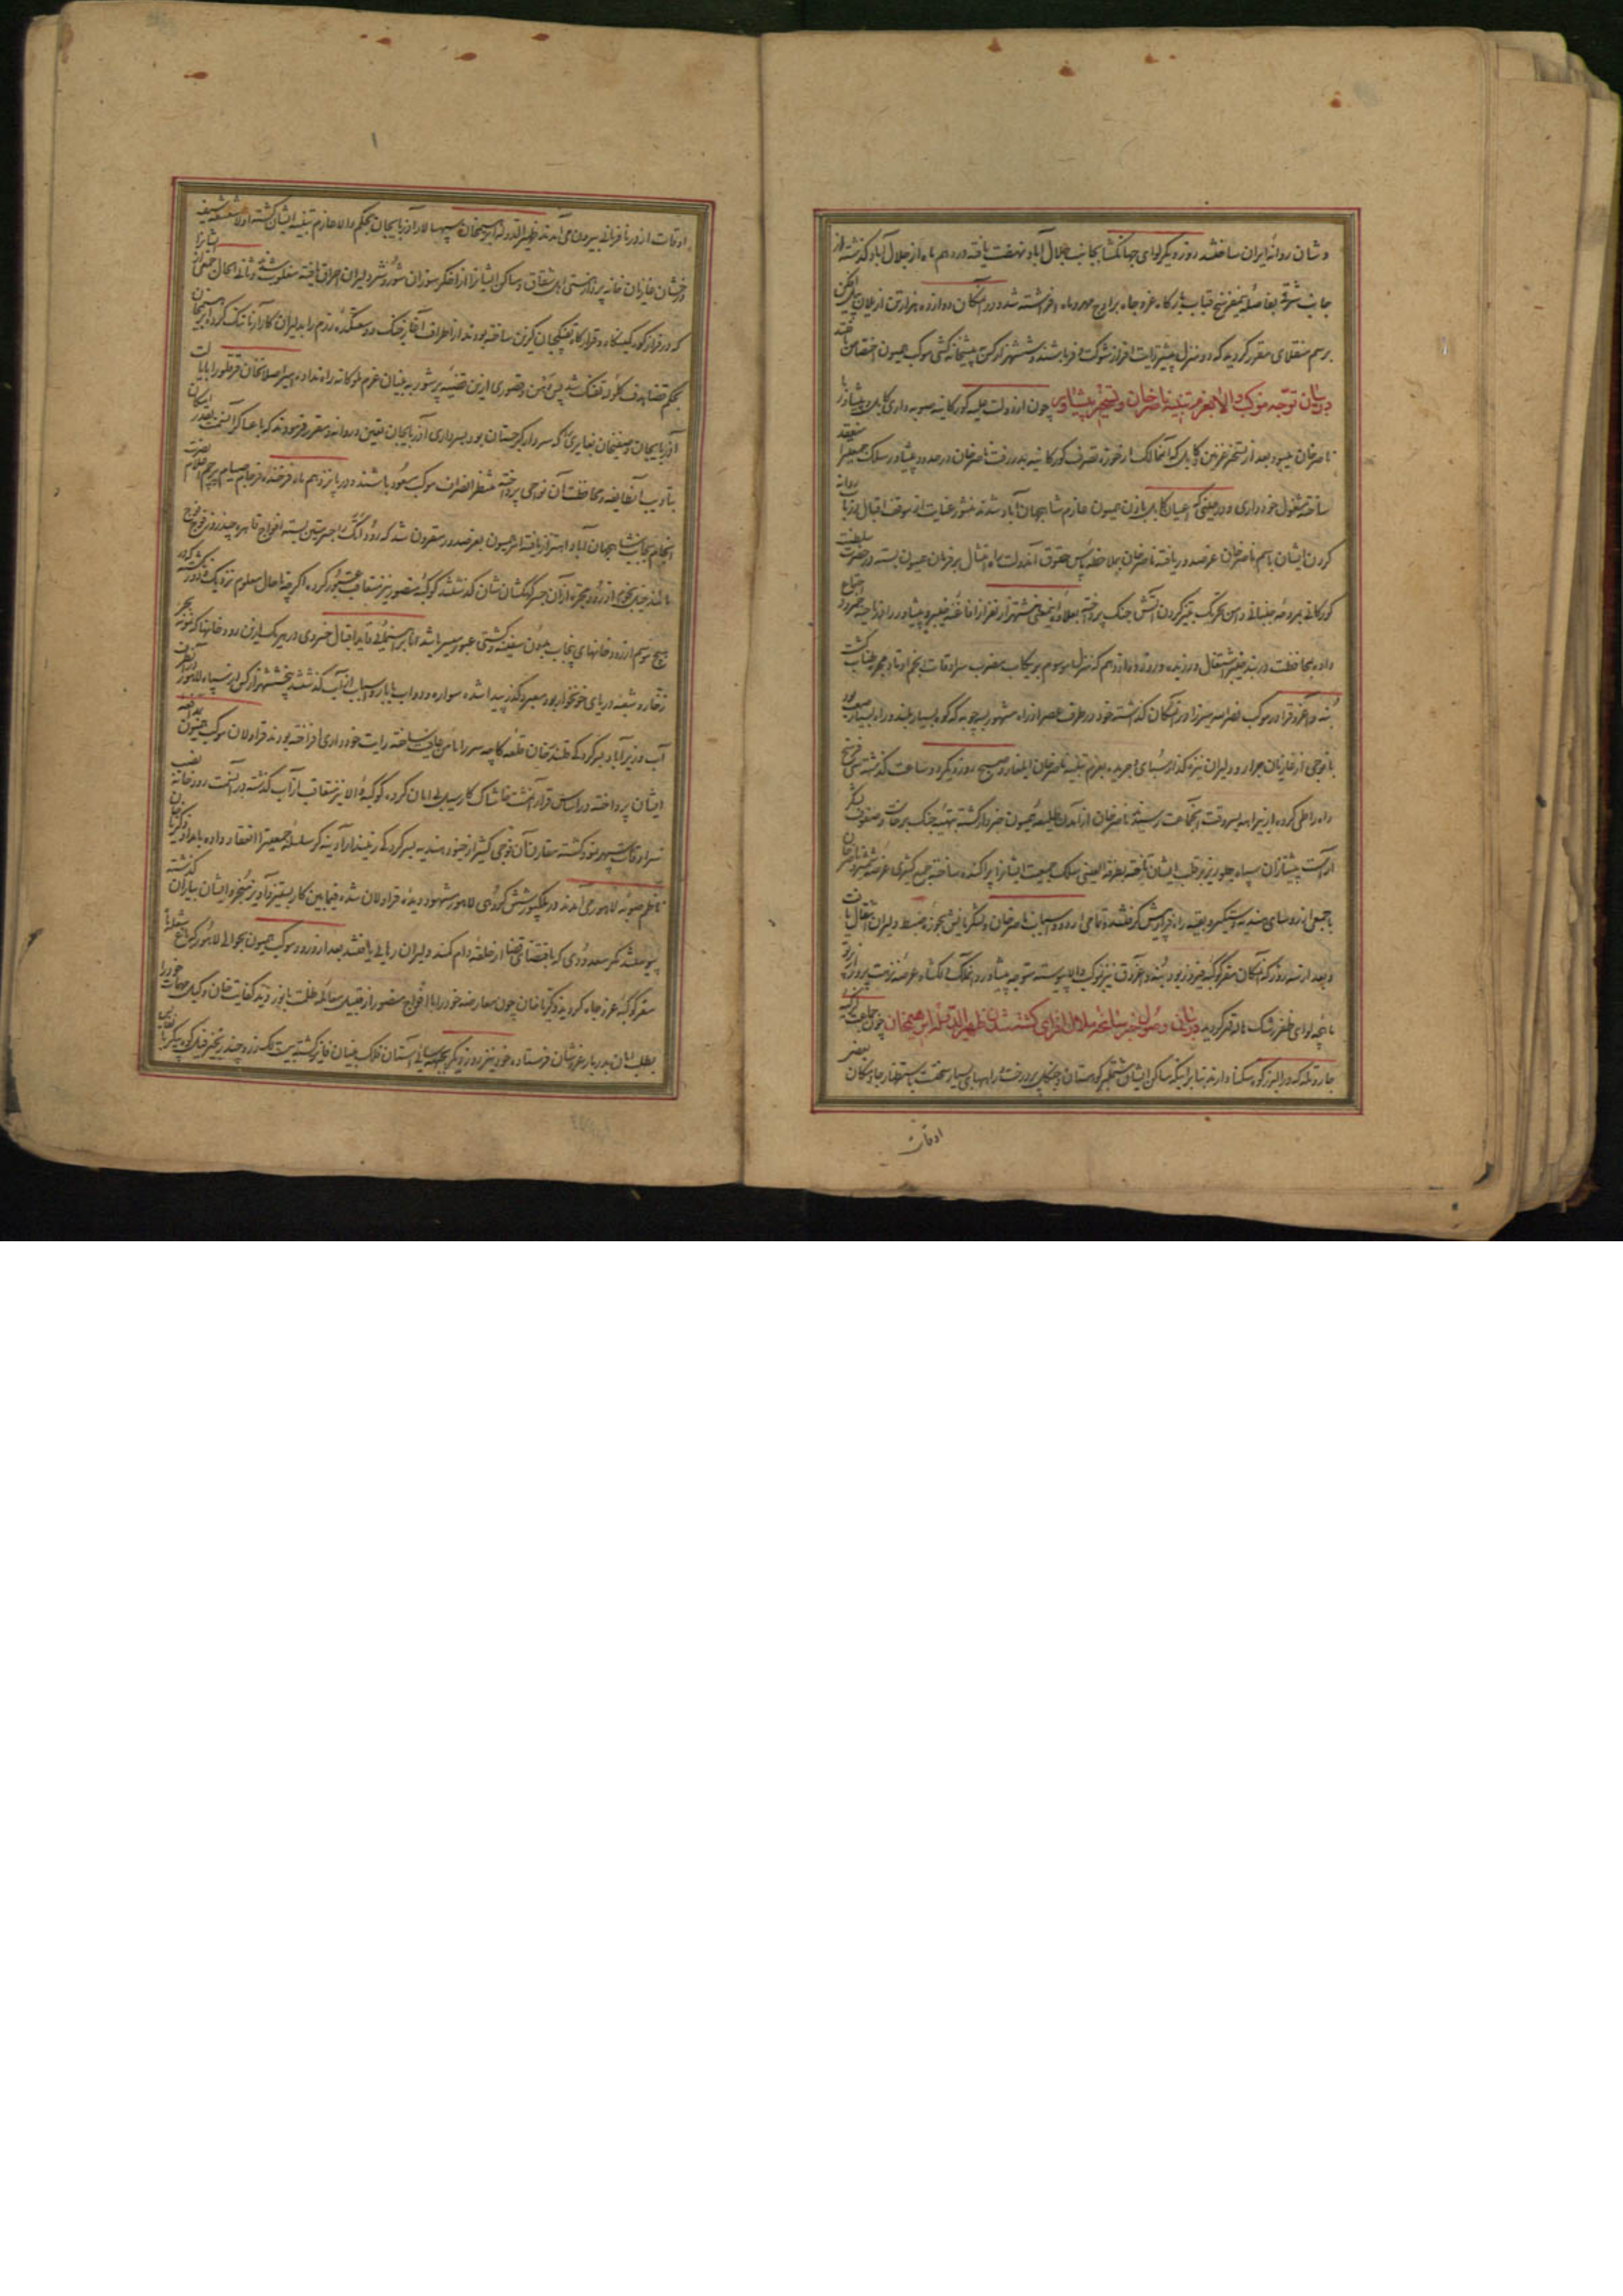 و شان روانهٔ ایران ساختند روز دیگر لوای جهانگشا بجانب جلال آباد نهضت یافته در دهم ماه از جلال آباد گذشته از
جانب شرقی بفاصلهٔ نیم فرسخ قباب بارگاه عز و جاه برابر اوج مهر و ماه افراشته شد و در آن مکان دوازده هزار تن از یلان
برسم منقلای مقرر گردید که دو منزل پیشتر رایت افراز شوکت و فر باشند و شش هزار کس پیشخانه کش موکب همیون اختصاص
در بیان توجه موکب والا بعزم تنبیه ناصر خان و تسخیر پیشاور چون از دولت علیه گورکانیه صوبه داری کابل و پیشاور با
ناصر خان میبود بعد از تسخیر غزنین و کابل که آن ممالک از حوزه تصرف گورکانیه بدر رفت ناصر خان در حدود پیشاور سلک جمعیت را منعقد
ساخته مشغول خود داری و در حینی که اعیان کابل باذن همیون عازم شاهجهان آباد شدند منشور عنایت از موقف اقبال در باب روانه
کردن ایشان باسم ناصر خان عز صدور یافته ناصر خان بملاحظه پاس حقوق آن دولت راه امتثال بر فرمان همیون بسته و در حضرت سلطنت
گورکانی بمروحه جنبانی دامن تحریک تیز کردن آتش جنگ پرداخته بعلاوه این معنی بیست هزار نفر از افاغنه خیبر و پیشاور را در ناحیه جمرود اجتماع
داده بمحافظت دربند خیبر اشتغال ورزیده و روز دوازدهم که منزل موسوم به ریکاب مضرب سرادقات نجم اوتاد مجره طناب گشت
بنه و آغروق را در موکب نصر الله میرزا در آن مکان گذاشته خود در طرف عصر از راه مشهور بسه چوبه که کوه بسیار بلند و راه بسیار صعب بود
با فوجی از غازیان جرار و دلیران نیزه گذار سبای جریده بعزم تنبیه ناصر خان ایلغار و صبح روز دیگر دو ساعت گذشته سی فرسخ
راه را طی کرده از بیراهه بسر وقت آن جماعت رسیدند ناصر خان از آمدن طلیعه همیون خبردار گشته تهیه جنگ بر خاست و صفوف لشکر
آراست پیشتازان سپاه جلو ریز بر قلب ایشان تاخته بطرفة العینی سلک جمعیت ایشانرا پراکنده ساخته جمع کثیری عرضه شمشیر و ناصر خان
با جمعی از روسای هندیه دستگیر و بقیه راه فرار پیش گرفتند و تمامی اردو و اسباب ناصر خان و لشکریانش بحوزه ضبط دلیران انتقال یافت
و بعد از سه روز که آن مکان مقر کوکبه فیروز بود بنه و آغروق نیز بموکب والا پیوسته متوجه پیشاور و آن ملک دلگشا عرصه نزهت پرور از پرتو
ماهچه لوای ظفر رشک ماه و قمر گردید در بیان وصول خبر سانحه ملال افزای کشته شدن ظهیر الدوله ابراهیم خان چون جماعت لکزیه
جار و تله که در البرز کوه سکنا دارند بنابر اینکه مساکن ایشان مشتمل بر کوهستان و جنگل پر درخت و راههای بسیار سخت است باستظهار جا و مکان بعضی
اوقات
اوقات از در نافرمانی بیرون می آمدند ظهیر الدوله ابراهیم خان سپهسالار آذربایجان بحکم والا عازم تنبیه ایشان گشته اولا بشعشعه سیف
درخشان غازیان خانه پرداز هستی اهل شقاق و مساکن ایشانرا از اخگر سوزان شور و شر دلیران احراق یافته منکوب شدند و ثانی الحال جمعی از ایشانرا
که در قرار کوه کمینگاه و قرارگاه تفنگچیان گزین ساخته بودند از اطراف آغاز جنگ و وسعتگاه رزم را بدلیران کارآزما تنگ کرده ابراهیم خان
بحکم قضا هدف گلوله تفنگ شد پس وهن و قصوری ازین قضیه پرشور به بنیان عزم ملوکانه راه نداده امیر اصلان خان قرقلو را بایالت
آذربایجان و صفیخان بغایری را که سردار گرجستان بود بسرداری آذربایجان تعیین و روانه و مقرر فرمودند که با عساکر آن سمت بقدر امکان
بتادیب آن طایفه و محافظت آن نواحی پرداخته منتظر انصراف موکب مسعود باشند و در پانزدهم ماه فرخنده فرجام صیام پرچم اعلام نصرت
انجام بجانب شاهجهان آباد اهتزاز یافته امر همیون بعز صدور مقرون شد که رود اتک را جسر متین بسته افواج قاهره چند روز فوج فوج
مانند خیل نجوم از رود مجره از آن جسر کهکشان نشان گذشتند کوکبه منصور نیز متعاقب عبور کرده اگر چه تا حال معلوم نزدیک و دور نگشته که در
هیچ موسم از رودخانهای پنجاب بدون سفینه و کشتی عبور میسر باشد اما براهنمائی تایید اقبال خسروی در هر یک از این رودخانها که نمونه بحر
زخار و شعبه دریای خونخوار بود معبر و گذر پیدا شده سواره و دواب با بار و اسباب از آب گذشتند شش هزار کس از سپاه لاهور از آنطرف
آب وزیر آباد بسرکردگی قلندر خان قلعه کاچه سر را مامن عافیت ساخته رایت خود داری افراخته بودند قراولان موکب همیون بدفع
ایشان پرداخته در اساس قرار آن مشت خاشاک کار سیل بی امان کرده کوکبه والا نیز متعاقب از آب گذشته در آن سمت رودخانه نصب
سرادقات سپهر نمود گشته مقارن آن فوجی کثیر از جنود هندیه بسرکردگی زمیندار آدینه نگر سلسله جمعیت را انعقاد داده بامداد زکریا خان
ناظم صوبه لاهور می آمدند در ملکپور شش کروهی لاهور مشهود دیده قراولان شده فیمابین کار بستیز و آویز منجر و ایشان بیاران گذشته
پیوستند مگر معدودی که باقتضای قضا از حلقه دام کمند دلیران رهائی یافتند بعد از ورود موکب همیون بحوالی لاهور که باغ شعله ماه
مقر کوکبه عز و جاه گردید زکریا خان چون معارضه خود را با افواج منصور از قبیل معامله ظلمت با نور دید کفایت خان وکیل مهمات خود را
بطلب امان بدربار عز و شان فرستاده خود نیز روز دیگر بجبهه سائی آستان فلک بنیان فائز گشته بیست لک زر و چند زنجیر فیل کوه پیکر با نفایس